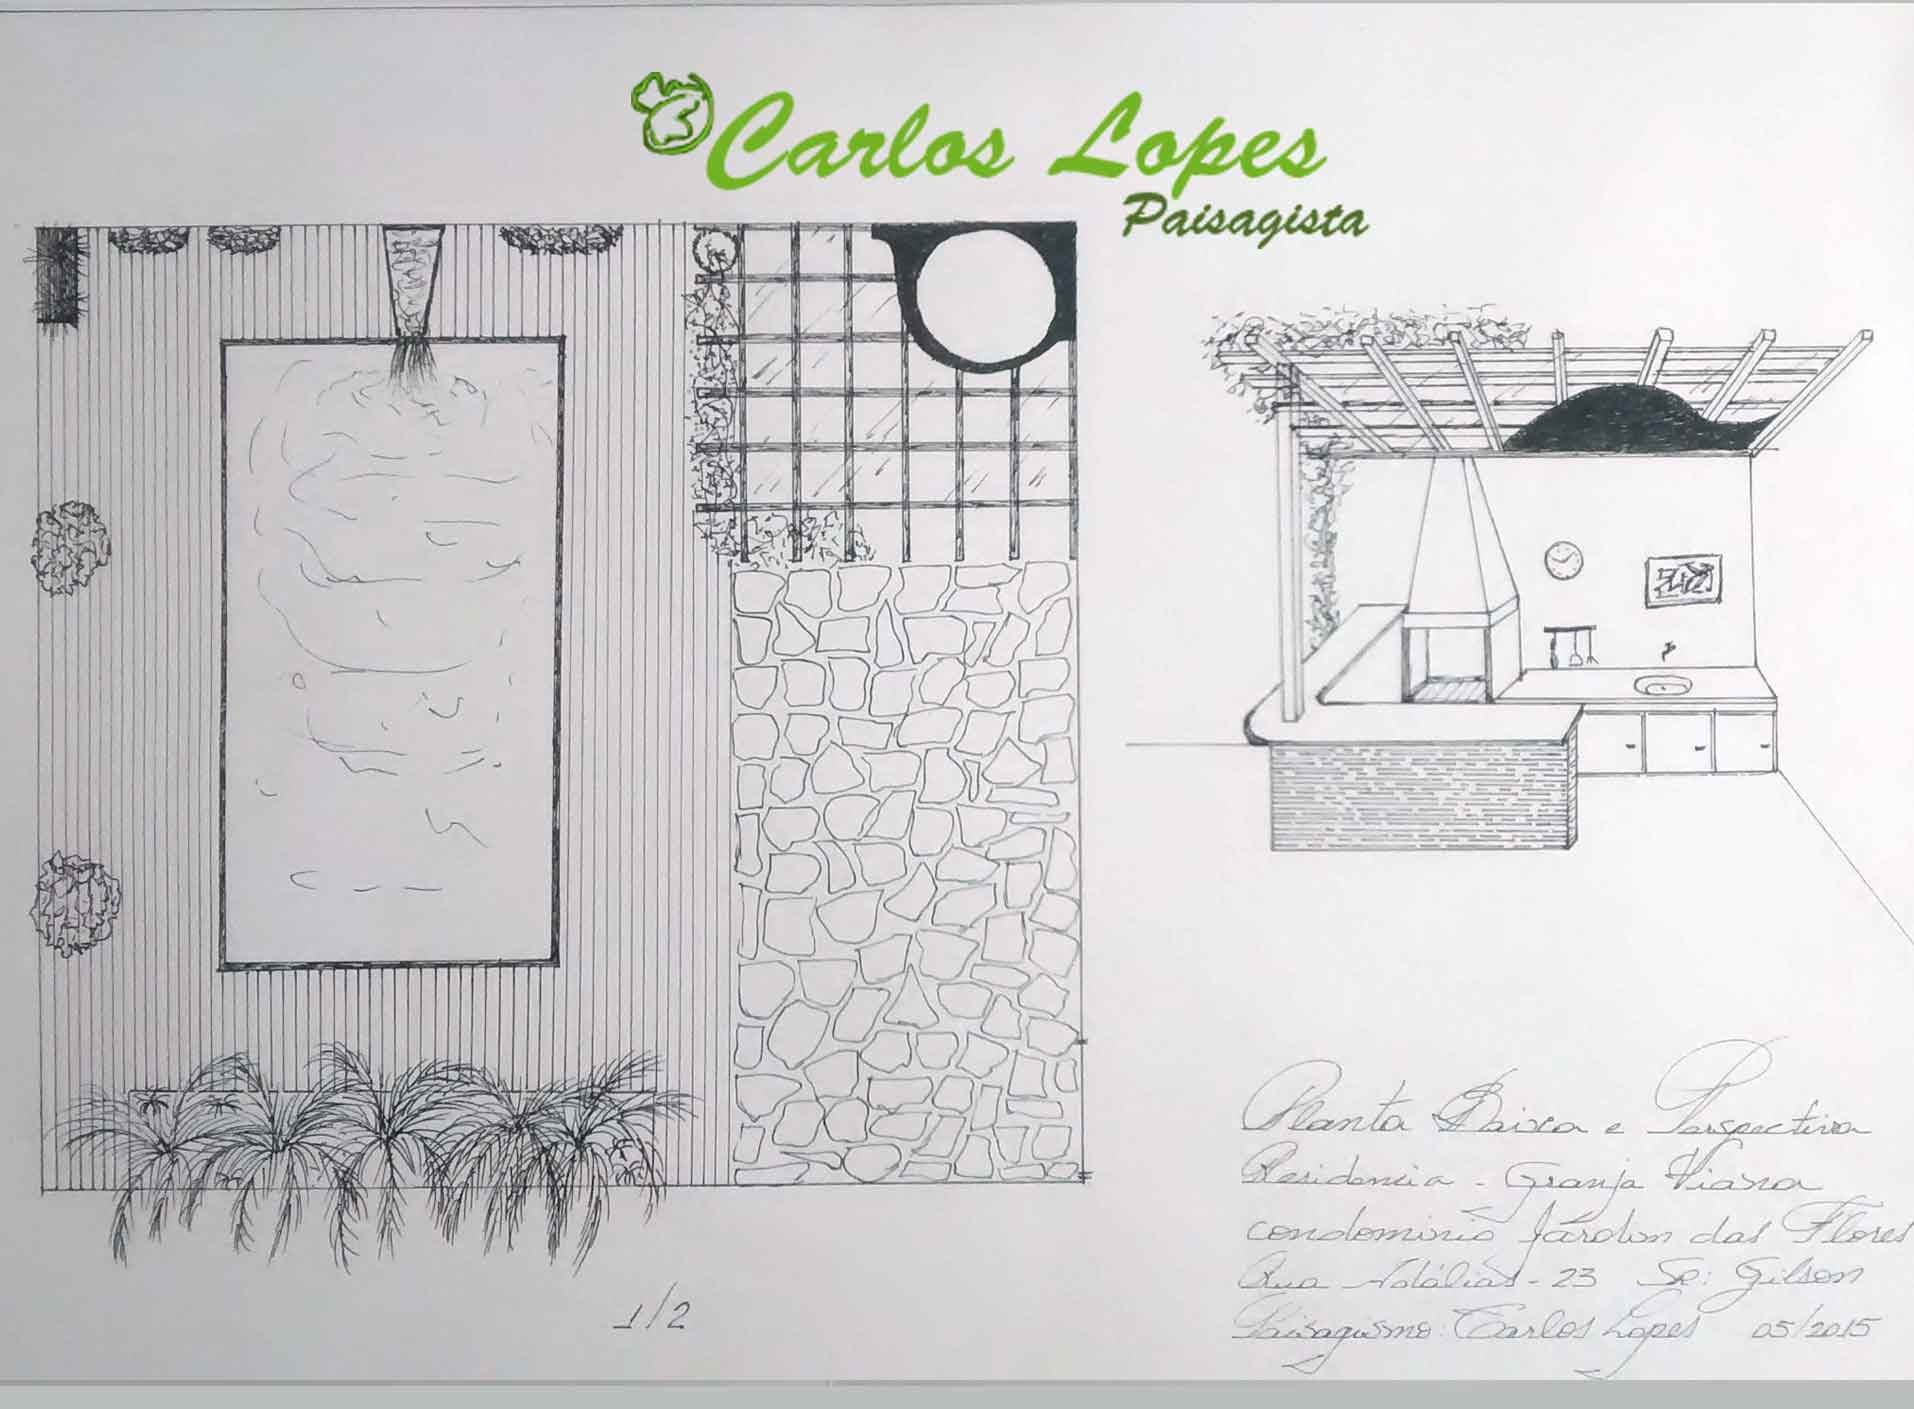 Carlos Lopes
Paisagista
Planta Baixa e Perspectiva
Residencia - Granja Viana
condominio Jardim das Flores
Rua - 23 Sr: Gilson
Paisagismo: Carlos Lopes 05/2015
1/2